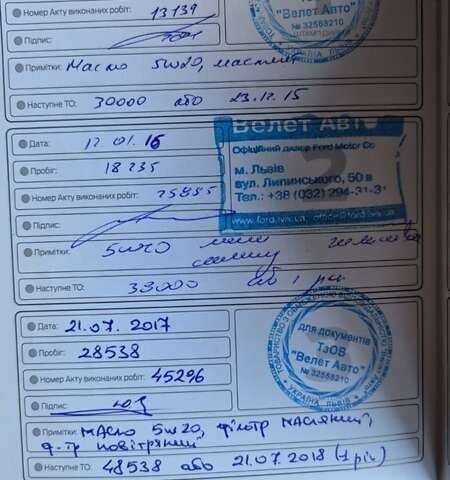 Номер Акту виконаних робіт: 13139
"Велет Авто"
№ 32568210
Підпис:
УКРАЇНА ЛЬВІВ
Примітки: Масло 5w20,
Наступне ТО: 30000 або 23.12.15
Велет АВТО
Дата: 12.01.16
Офіційний дилер Ford Motor Co
Пробіг: 18235
м. Львів
вул. Липинського, 50 в
Номер Акту виконаних робіт:
Тел.: +38 (032) 294-31-31
Підпис:
www.ford.lviv.ua, office@ford.lviv.ua
Примітки: 5w20
Наступне ТО: 33000 або 1 рік
Дата: 21.07.2017
для документів
Пробіг: 28538
ТзОВ
"Велет Авто"
Номер Акту виконаних робіт: 45296
№ 32568210
Підпис:
УКРАЇНА ЛЬВІВ
Примітки: МАСЛО 5w20, фільтр масляний,
ф-тр повітряний
Наступне ТО: 48538 або 21.07.2018 (1 рік)